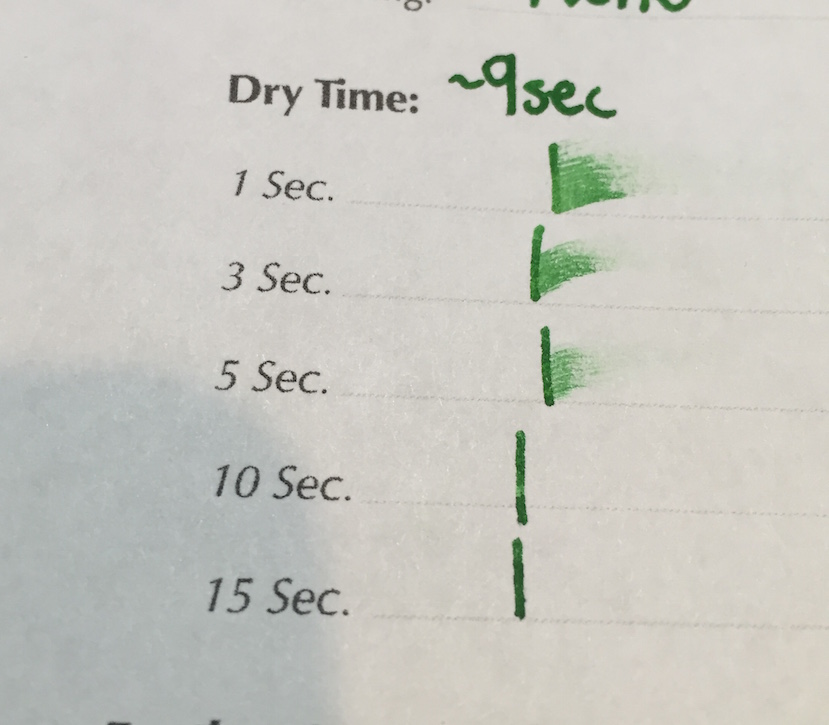 Dry Time: ~9sec
1 Sec.
3 Sec.
5 Sec.
10 Sec.
15 Sec.